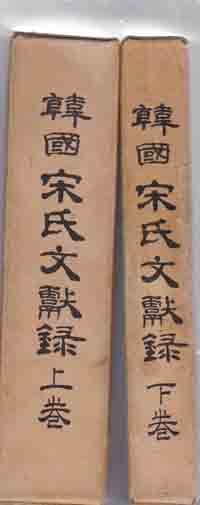 韓國宋氏文獻錄上卷
韓國宋氏文獻錄下卷